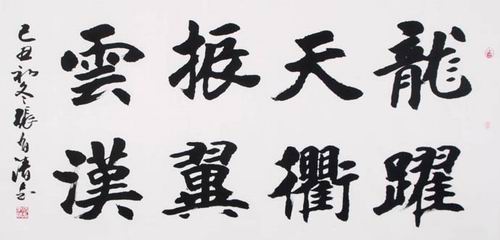 龍躍
天衢
振翼
雲漢
己丑初冬張自清書